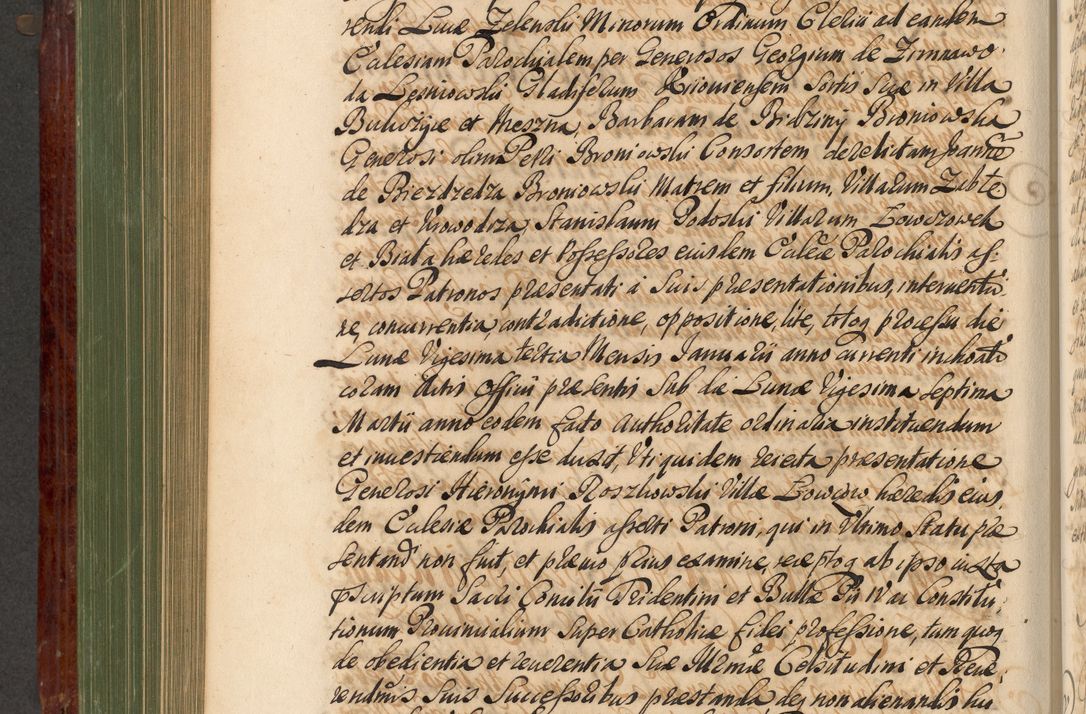 rendi Lucæ Zelenski Minorum Ordinum Clerici ad eandem
Ecclesiam Parochialem per Generosos Georgium de Zirnnawo
da Leśniowski Gladiferum Kiioviensem Sortis Suæ in Villa
et Meszna, Barbaram de Broniowska
Generosi olim Petri Broniowski Consortem derelictam, Joannē
de Biezdzedza Broniowski Matrem et filium, Villarum
dza et Stanislaum Podoski Villarum Lowczowek
et Biała hæredes et Possessores eiusdem Ecclæ Parochialis as-
sertos Patronos præsentati à Suis præsentationibus, interventio
ne, concurrentia, contradictione, oppositione, lite, totoq processu die
Lunæ Vigesima tertia Mensis Januarii anno currenti inchoati
coram Actis Officii præsentis Sub die Lunæ Vigesima Septima
Martii anno eodem facto Authoritate ordinaria instituendum
et investiendum esse duxit, Uti quidem reiecta præsentatione
Generosi Hieronymi Roszkowski Villæ Lowczow hæredis eius-
dem Ecclesiæ Parochialis asserti Patroni, qui in Ultimo Statu præ
sentand non fuit, et prævio prius examine, receptoq ab ipso iuxta
præscriptum Sacri Concilii Tridentini et Bullæ Pii IV ac Constitu-
tionum Provincialium Super Catholicæ fidei professione, tum quoq
de obedientia et reverentia Suæ Celsitudini et Reve-
rendmis Suis Successoribus præstanda, deq non alienandis bu